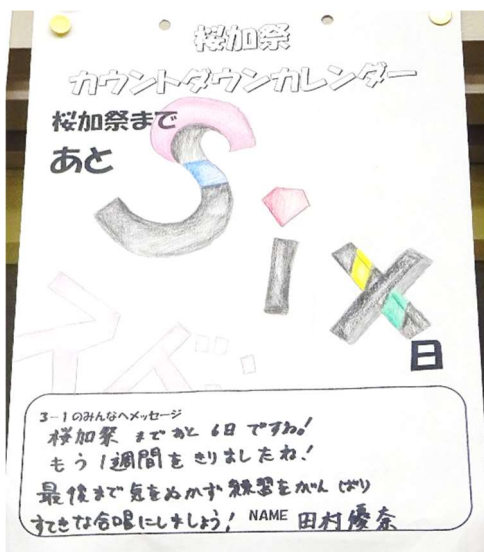 桜加祭
カウントダウンカレンダー
桜加祭まで
あと
Six
日
3-1のみんなへメッセージ
桜加祭まであと6日ですね!
もう1週間をきりましたね!
最後まで気をぬかず練習をがんばり
すてきな合唱にしましょう! NAME 田村優奈